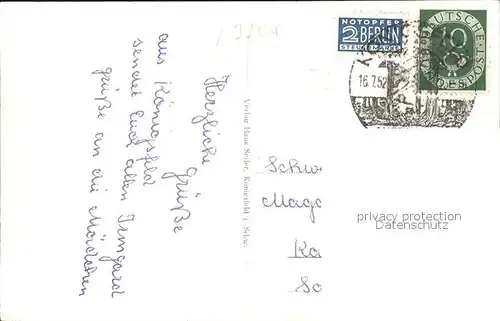 NOTOPFER
2 BERLIN
STEUERMARKE
DEUTSCHE
10
BUNDESPOST
16.7.52
Herzliche Grüße
aus Königsfeld
sendet Euch allen Irmgard
Grüße an die Mädchen
Verlag Hans Seiler, Königsfeld i. Schw.
Schw
Mago
Ka
So
privacy protection
Datenschutz